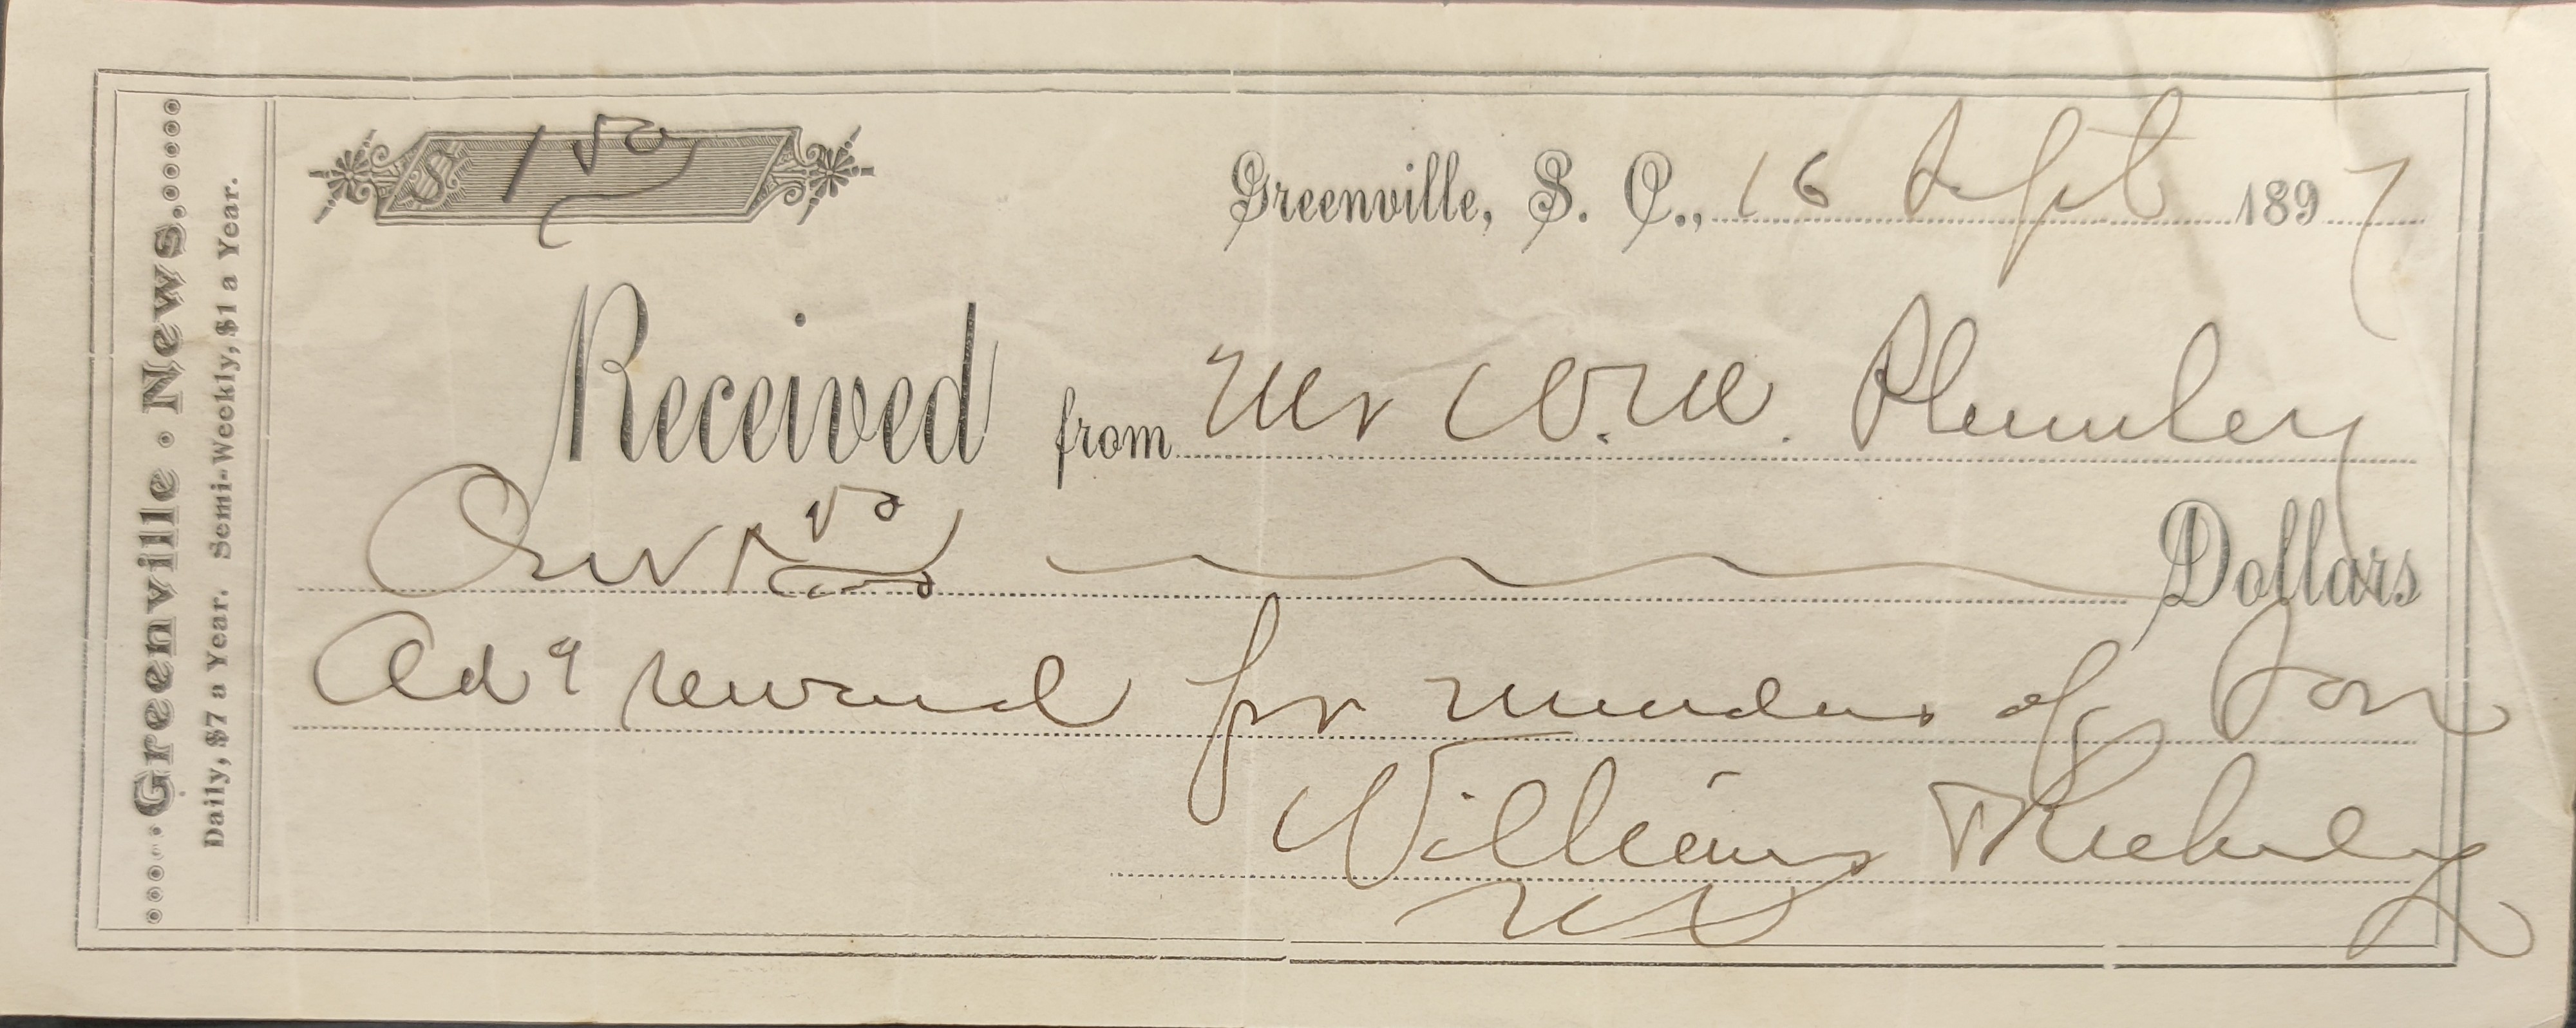 Greenville · News.
Daily, $7 a Year. Semi-Weekly, $1 a Year.
$ 1 50
Greenville, S. C., 16 Sept 1897
Received from Mr W. M. Plumley
One & 50 Dollars
Adg reward for murder of Jon
Williams